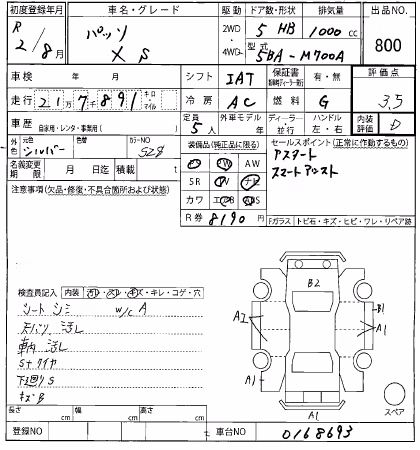 初度登録年月 車名・グレード 駆動 ドア数・形状 排気量 出品NO.
R 2/8月 パッソ X S 2WD 4WD 5 HB 1000cc 800
型式 5BA-M700A
車検 年 月 シフト IAT 保証書 有・無 評価点
走行 21万7千891 キロ・マイル 冷房 AC 燃料 G 3.5
車歴 自家用・レンタ・事業用( ) 定員 5人 外車モデル 年 ディーラー・並行 ハンドル 左・右 内装評価 D
外色 元色 シルバー 色替 カラーNO S28
装備品(純正品に限る) セールスポイント(正常に動作するもの)
名義変更期限 月 日迄 積載 t
PS PW AW
SR TV ナビ
カワ エアB ABS
アスタート
スマートアシスト
R券 8190 円
注意事項(欠品・修復・不具合箇所および状態)
Fガラス トビ石・キズ・ヒビ・ワレ・リペア跡
検査員記入 内装 汚れ・スレ・キズ・キレ・コゲ・穴
シートシミ w/c A
天バリ 汚レ
車内 汚レ
S+タイヤ
下廻りS
キズB
B2
B1
A1
A1
A1
A1
スペア
長さ cm 幅 cm 高さ cm
登録NO 車台NO 0168693